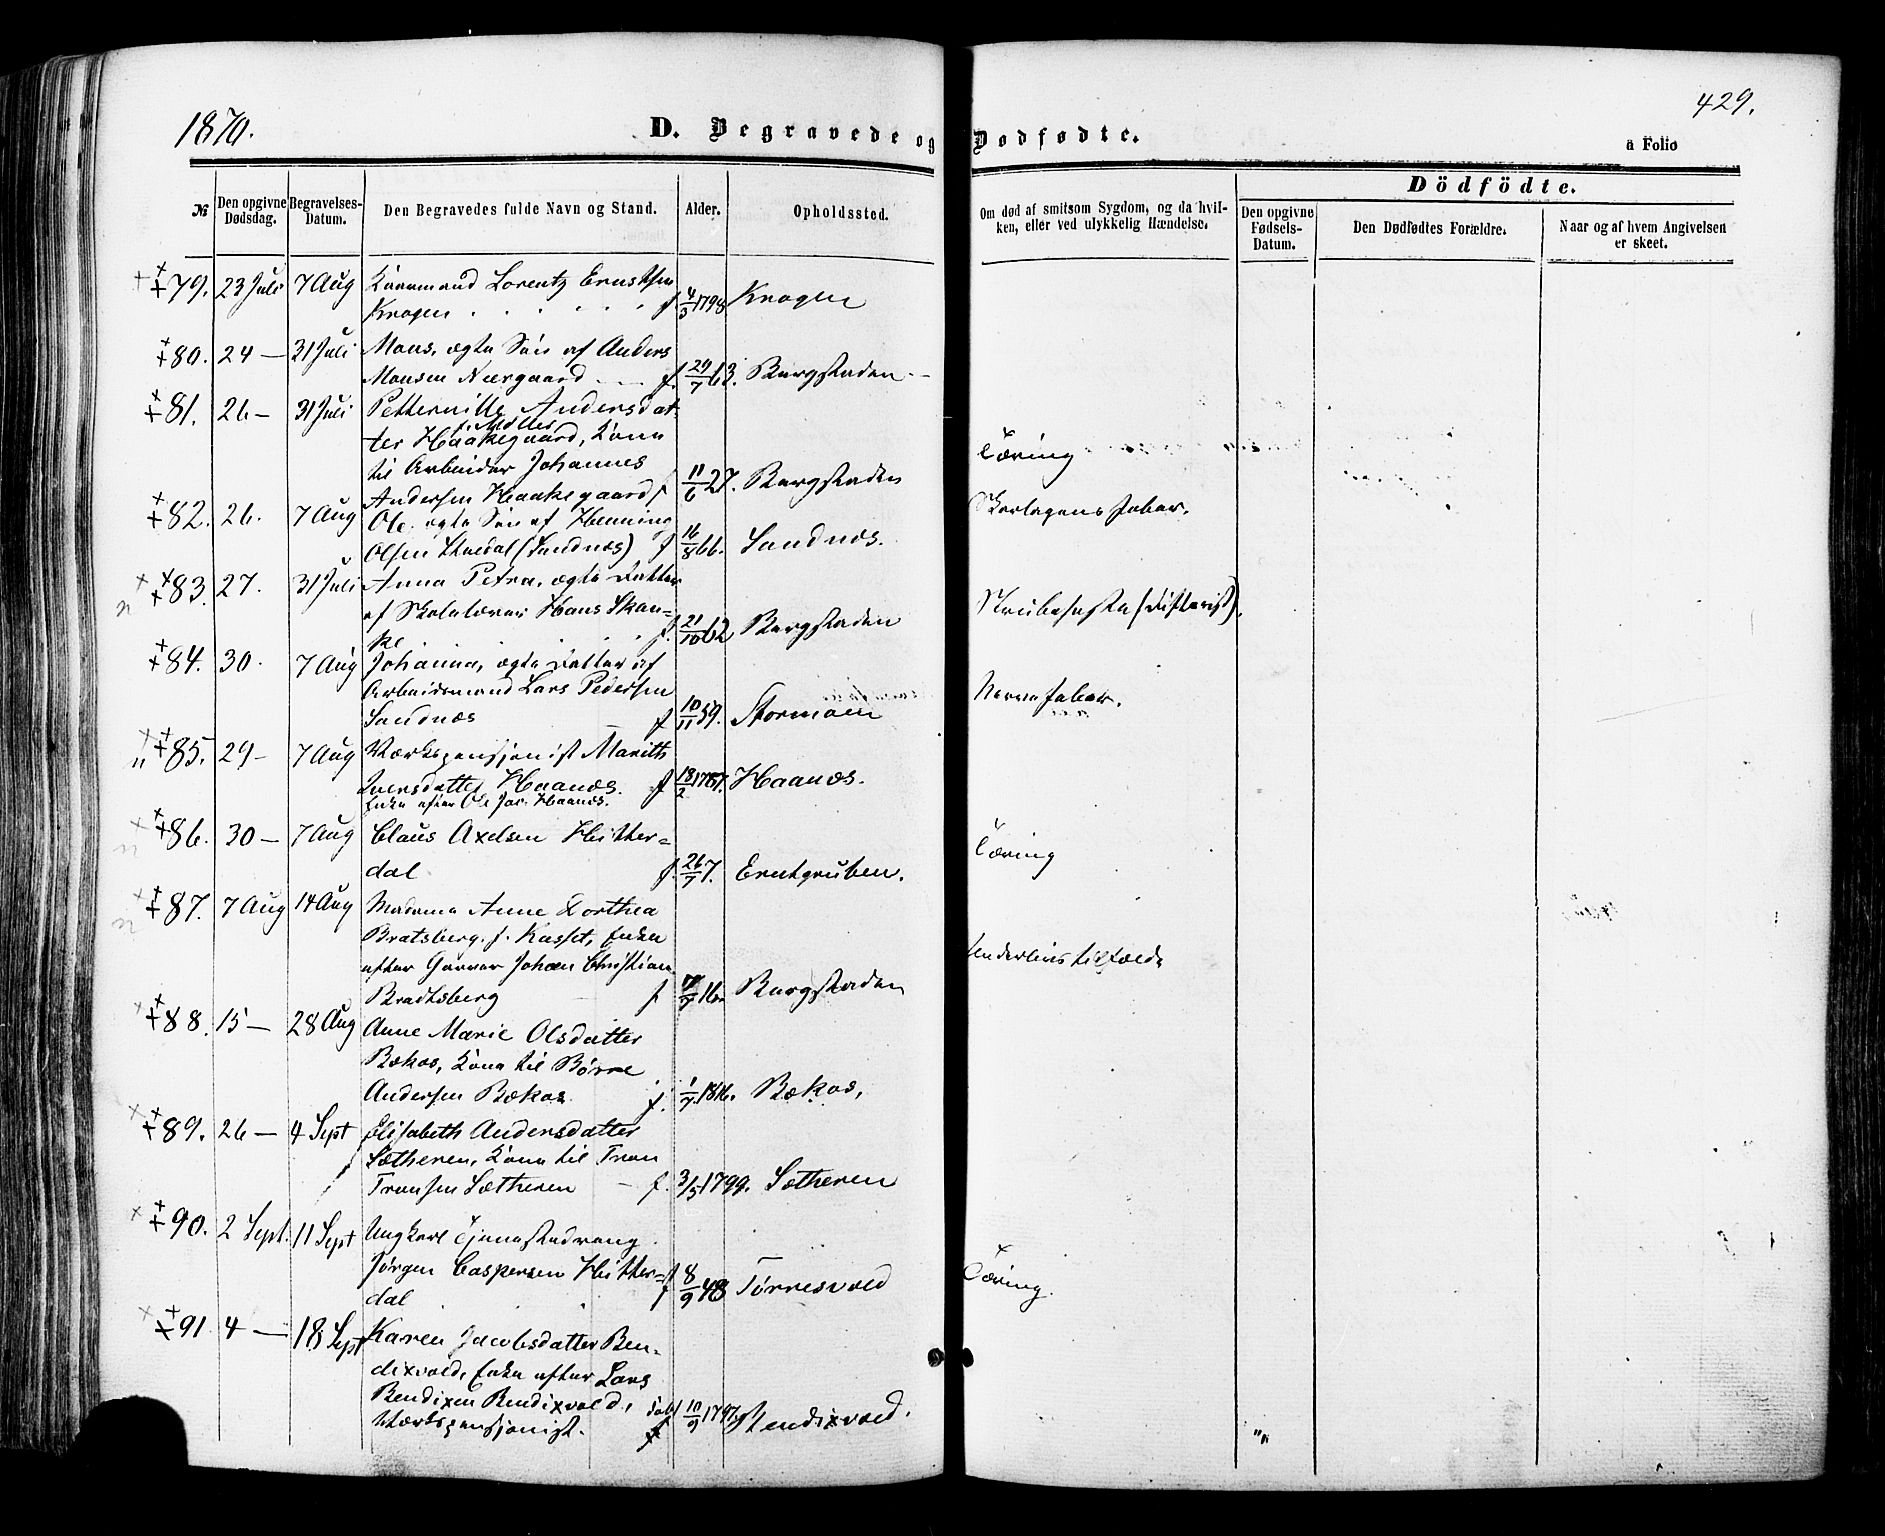 1870.
429.
D. Begravede og Dødfødte.
a Folio
№
Den opgivne Dødsdag.
Begravelses-Datum.
Den Begravedes fulde Navn og Stand.
Alder.
Opholdssted.
Om død af smitsom Sygdom, og da hvil-
ken, eller ved ulykkelig Hændelse.
Dödfödte.
Den opgivne Fødsels-Datum.
Den Dødfødtes Forældre.
Naar og af hvem Angivelsen er skeet.
79. 23 Juli 7 Aug Lorentz Ernstsen
Krogen f. 4/5 1798 Krogen
80. 24 — 31 Juli Mons, ægte Søn af Anders
Monsen Nærgaard f. 29/7 63. Bergstaden
81. 26 — 31 Juli Petternille Andersdat-
f. Møller
ter Haakegaard, Kone
til Arbeider Johannes
Andersen Haakegaard f. 11/6 27. Bergstaden
Tæring
82. 26. 7 Aug Ole, ægte Søn af Henning
Olsen (Sandnæs) f 16/8 66. Sandnæs.
Skarlagensfeber.
83. 27. 31 Juli Anna Petra, ægte Datter
af Skolelærer Hans Skan-
ke f. 21/10 62 Bergstaden
Strubehoste (Difterist).
84. 30. 7 Aug Johanna, ægte Datter af
Arbeidsmand Lars Pedersen
Sandnæs f 10/11 59. Stormoen
Nervefeber.
85. 29 — 7 Aug Værkspensjonist Marith
Iversdatter Haanæs. f 18/2 1787. Haanæs.
Enke efter Ole Jac. Haanæs.
86. 30 — 7 Aug Claus Axelsen Hitter-
dal f. 26/7 7. Erntgruben.
Tæring
87. 7 Aug 14 Aug Madame Anne Dorthea
Bratsberg. f. Kasset, Enke
efter Garver Johan Christian
Bradtsberg f 16. Bergstaden
Underlivstilfælde
88. 15 — 28 Aug Anne Marie Olsdatter
Bækos, Kone til Børre
Andersen Bækos f. 1/7 1816. Bækos,
89. 26 — 4 Sept Elisabeth Andersdatter
Sætheren, Kone til Tron
Tronsen Sætheren f. 3/5 1799. Sætheren
90. 2 Sept. 11 Sept Ungkarl Tjenestedreng
Jørgen Caspersen Hitter-
dal f 8/9 48 Tørresvold
Tæring.
91 4 — 18 Sept Karen Jacobsdatter Ben-
dixvold, Enke efter Lars
Bendixen Bendixvold,
Værkspensjonist. f 10/9 1797 Bendixvold.